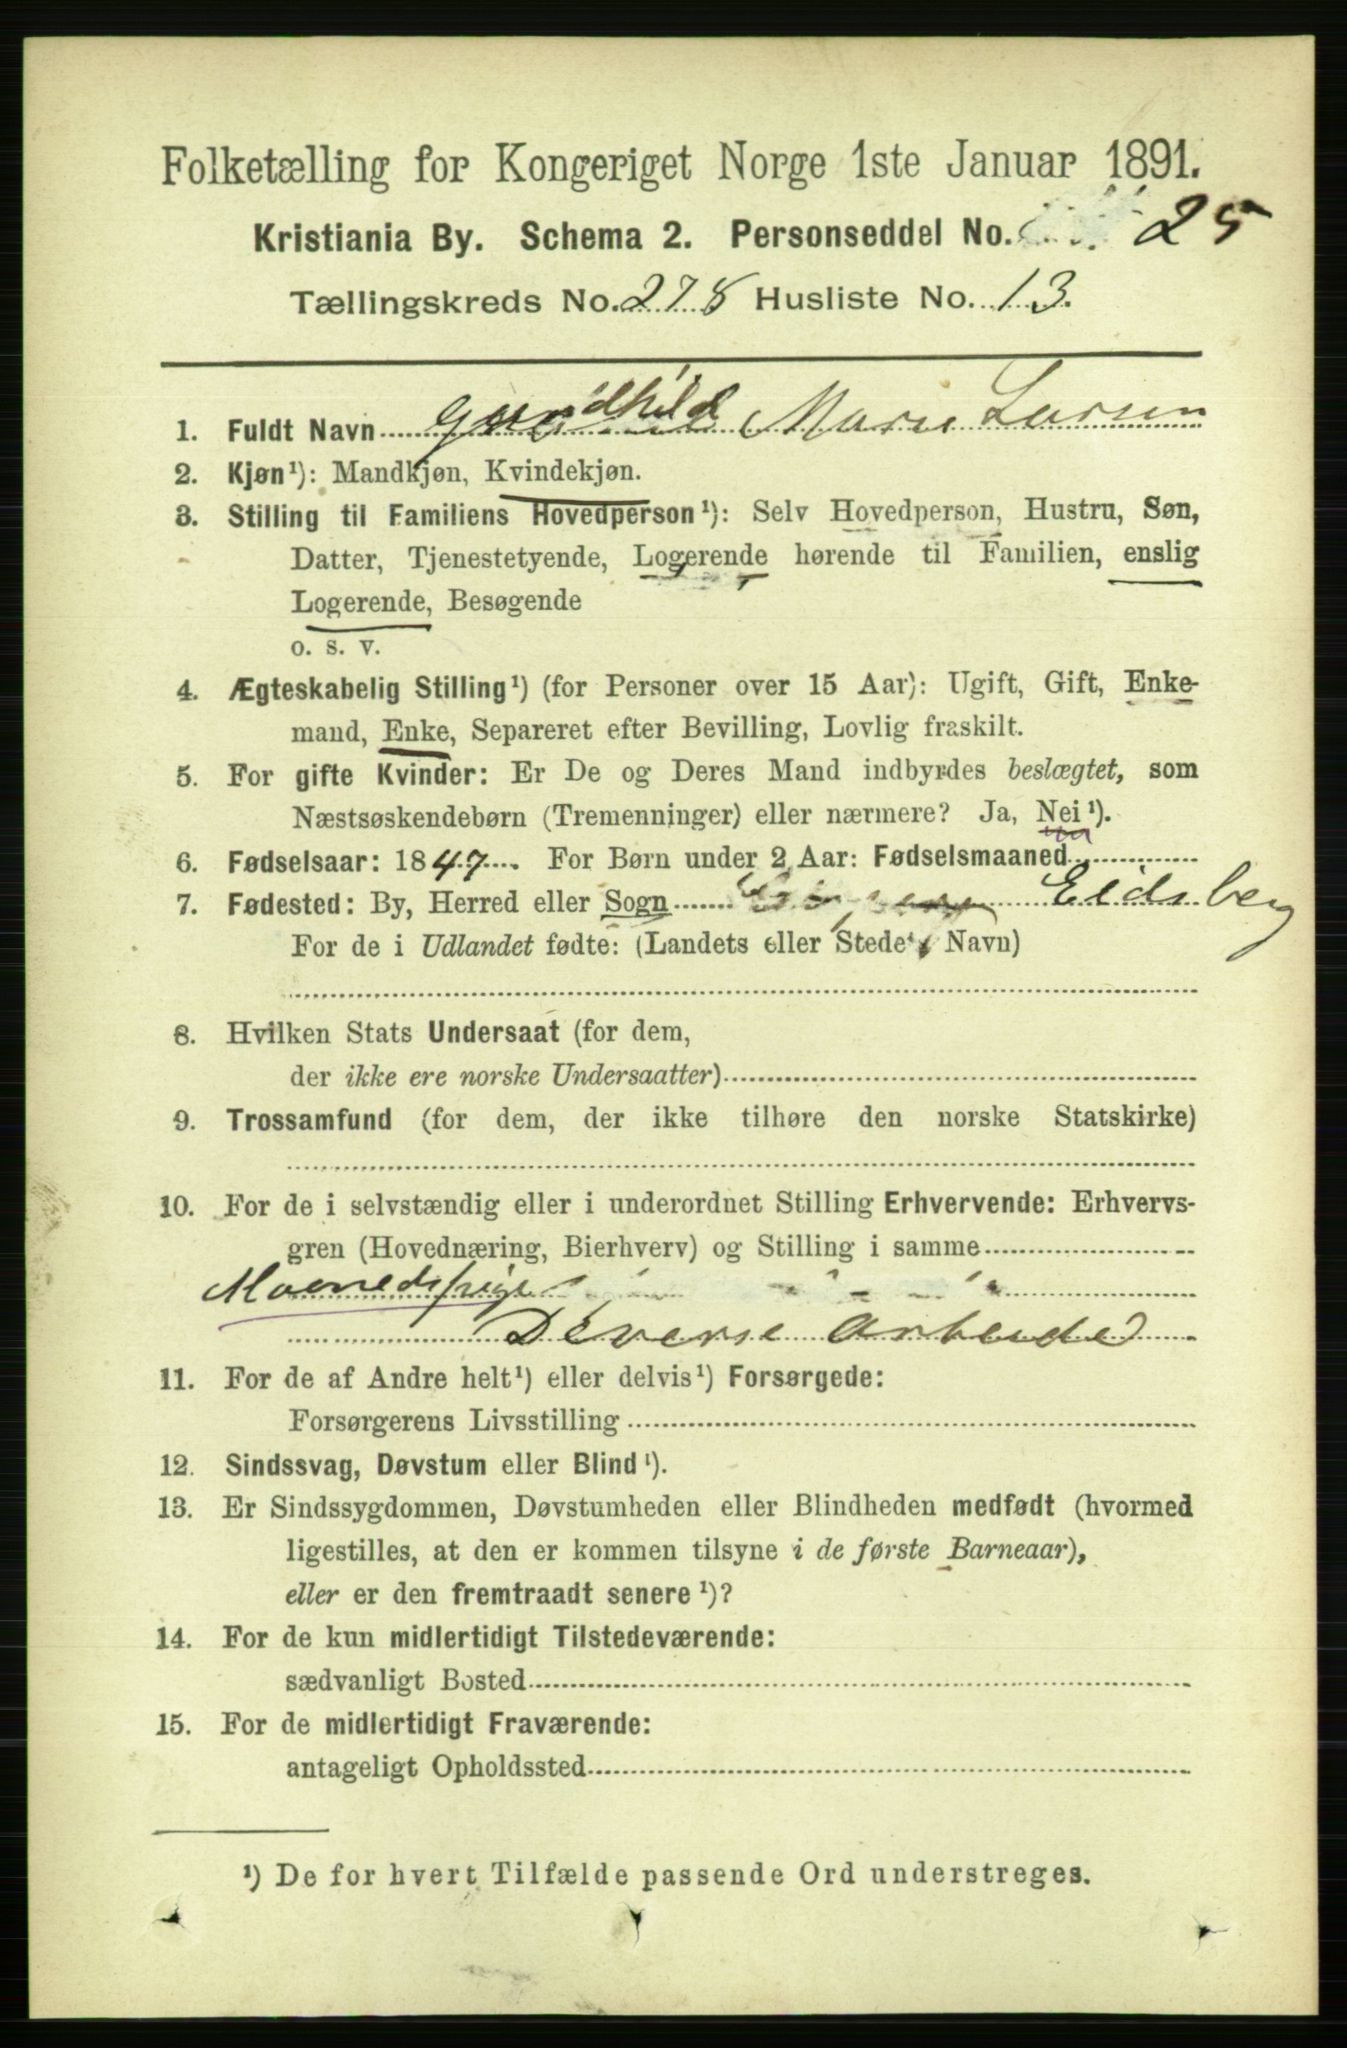 Folketælling for Kongeriget Norge 1ste Januar 1891.
Kristiania By. Schema 2. Personseddel No. 25
Tællingskreds No. 278 Husliste No. 13.
1. Fuldt Navn Gundhild Marie Larsen
2. Kjøn¹): Mandkjøn, Kvindekjøn.
3. Stilling til Familiens Hovedperson¹): Selv Hovedperson, Hustru, Søn,
Datter, Tjenestetyende, Logerende hørende til Familien, enslig
Logerende, Besøgende
o. s. v.
4. Ægteskabelig Stilling¹) (for Personer over 15 Aar): Ugift, Gift, Enke-
mand, Enke, Separeret efter Bevilling, Lovlig fraskilt.
5. For gifte Kvinder: Er De og Deres Mand indbyrdes beslægtet, som
Næstsøskendebørn (Tremenninger) eller nærmere? Ja, Nei¹).
6. Fødselsaar: 1847. For Børn under 2 Aar: Fødselsmaaned
7. Fødested: By, Herred eller Sogn Eidsberg
For de i Udlandet fødte: (Landets eller Stedets Navn)
8. Hvilken Stats Undersaat (for dem,
der ikke ere norske Undersaatter)
9. Trossamfund (for dem, der ikke tilhøre den norske Statskirke)
10. For de i selvstændig eller i underordnet Stilling Erhvervende: Erhvervs-
gren (Hovednæring, Bierhverv) og Stilling i samme
Maanedspige
Deverse Arbeide
11. For de af Andre helt¹) eller delvis¹) Forsørgede:
Forsørgerens Livsstilling
12. Sindssvag, Døvstum eller Blind¹).
13. Er Sindssygdommen, Døvstumheden eller Blindheden medfødt (hvormed
ligestilles, at den er kommen tilsyne i de første Barneaar),
eller er den fremtraadt senere¹)?
14. For de kun midlertidigt Tilstedeværende:
sædvanligt Bosted
15. For de midlertidigt Fraværende:
antageligt Opholdssted
¹) De for hvert Tilfælde passende Ord understreges.